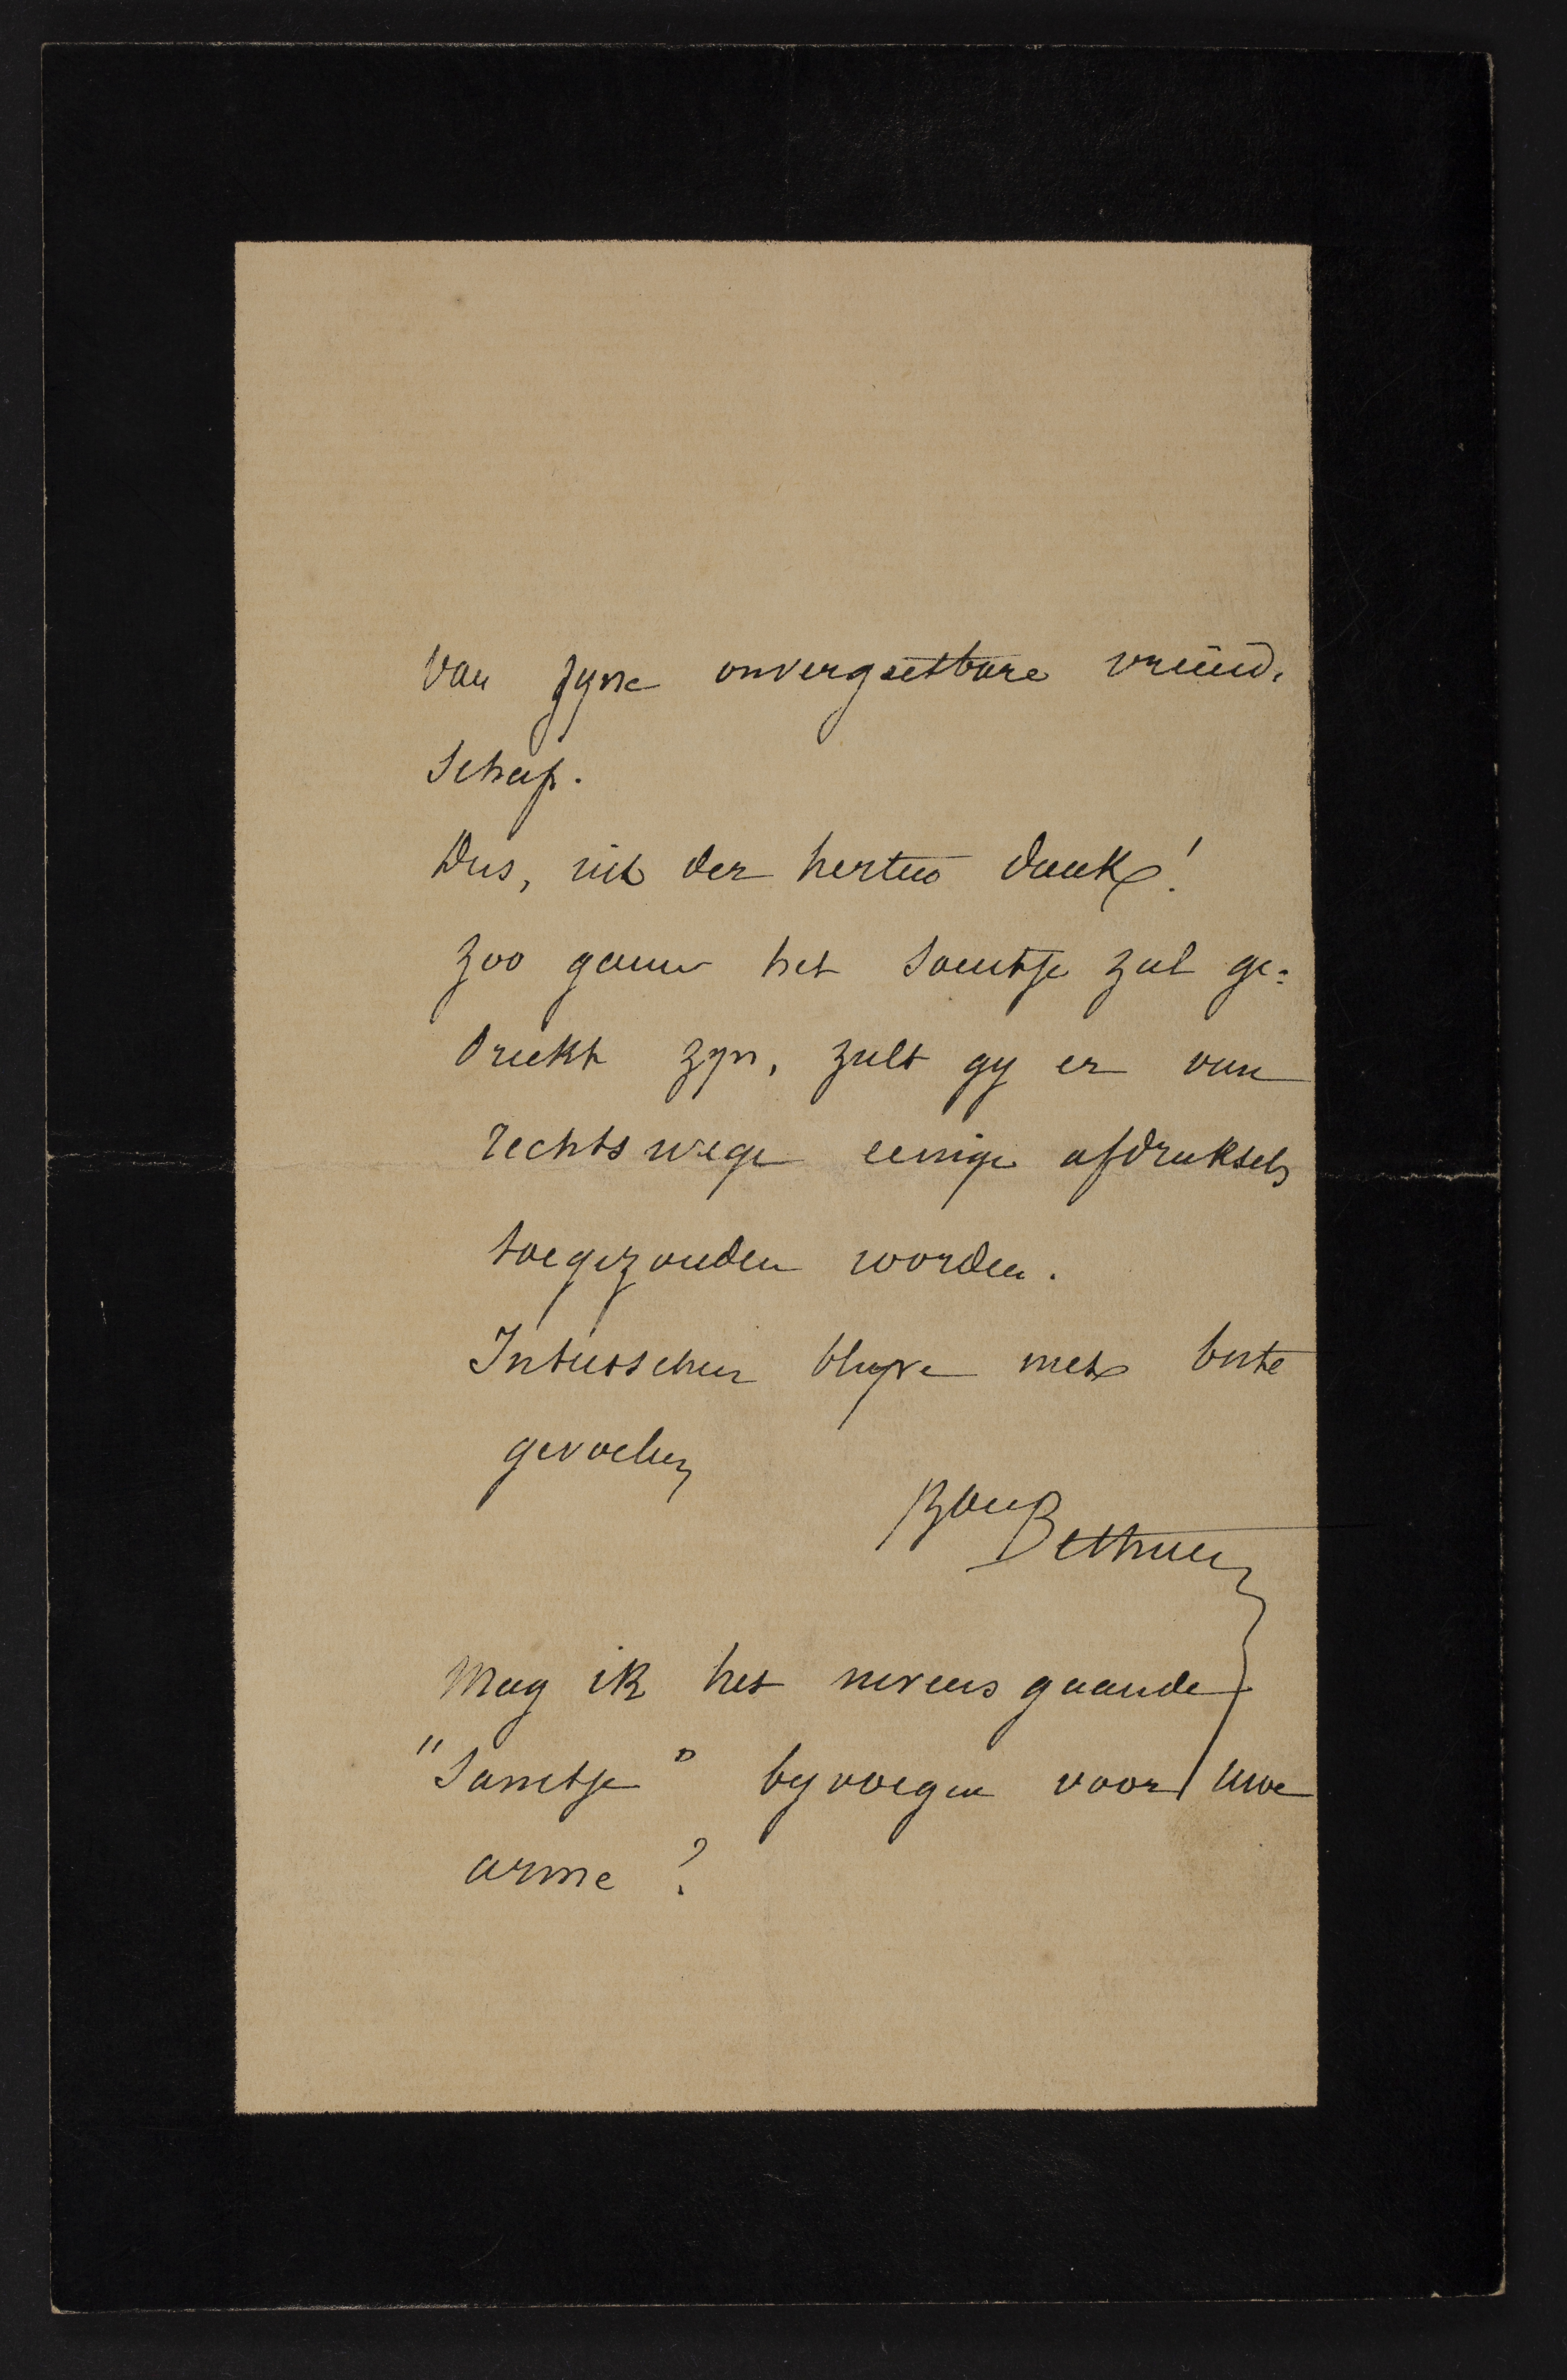 van zyne onvergeetbare vriend-
schap.
Dus, uit der herten dank!
Zoo gauw het santje zal ge=
drukt zyn, zult gy er van
rechtswege eenige afdruksels
toegezonden worden.
Intusschen blyve met beste
gevoelen
Bon Bethune
Mag ik het nevens gaande
"Santje" byvoegen voor uwe
arme?